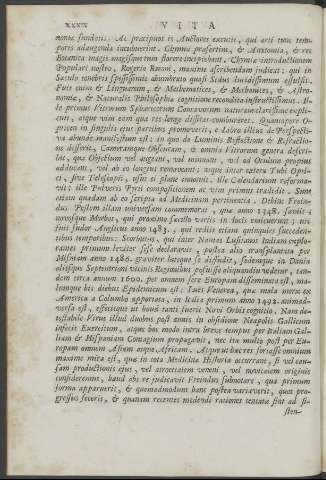 xxxix VITA
nonae fundoti. Ac praecipuos is Auctores excutit, qui arti tum temporis
adaugenda incubuerint. Chymia praesertim, & Anatomia, & res
Botanica magis magisque tum florere inceperant. Chymiae introductionem
Populari nostro, Rogerio Baconi, maxime ascribendam judicat; qui in
Saeculo tenebris spississimis obumbrato quasi Sidus lucidissimum effulsit.
Fuit enim & Linguarum, & Mathematices, & Mechanices, & Astronomiae,
& Naturalis Philosophiae cognitione recondita instructissimus. Ille
primus Vitrorum Sphaericorum Convexorum naturam clarissime explicuit,
atque vim eorum qua res longe dissitae comburerent. Quamopem
precen in singulis ejus partibus promoverit, e Libro illius de Perspectiva
abunde manifestum est: in quo de Luminis Reflexione & Refractione
disserit, Cameramque Obscuram, & omnia Vitrorum genera describit,
quae Objectum vel augent, vel minuunt, vel ad Oculum propius
adducunt, vel ab eo longius removeant; usque inter caetera Tubi Optici,
sive Telescopii, usus ei plane innotuit. Ille Calendarium reformavit:
ille Pulveris Pyrii compositionem ac vim primus tradidit. Sunt
etiam quaedam ab eo scripta ad Medicinam pertinentia. Debinc Freindus
Pestem illam universam commemorat, quae anno 1348. saeviit:
novosque Morbos, qui proximo saeculo varits in locis emicuerunt: nimis
Sudor Anglicus anno 1483., qui rediit etiam quinquies succedentibus
temporibus: Scorbutus, qui inter Nautas Lusitanos Italum explorantes
primum leviter sese declaravit, postea alio transplantatus per
Misniam anno 1486. graviter hucque se diffudit, sedemque in Dania
aliisque Septentrioni vicinis Regionibus posuisse aliquandiu videtur, tandem
circa annum 1600. per omnem fere Europam disseminatus est, malumque
hic diebus Epidemicum est. Lues Venerea, quae mala merx ex
America a Columbo apportata, in Italia primum anno 1492. animadversa
est, effecitque ut boni tanti fuerit Novi Orbis cognitio. Nam detestabile
Virus illud duobus post annis in obsidione Neapolis Gallicum
infecit Exercitum, atque hoc modo intra breve tempus per Italiam Galliam
& Hispaniam Contagium propagavit, nec ita multo post per Europam
omnem Asiam atque Africam. Atque ut haec res forsasse omnium
maxime mira est, quae in tota Medicinae Historia occurrunt, si vel causam
productionis ejus, vel atrocitatem veneni, vel novitatem originis
consideremus, haud abs re judicavit Freindus subnotare, qua primum
forma apparuerit, & quomodo eam haec postea variaverit, quos progressus
fecerit, & quaenam recentes medendi rationes tentatae sint ad
sisten-